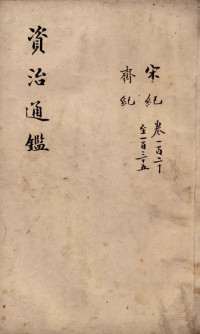 資治通鑑
宋紀
齊紀
卷一百二十
至一百三十五